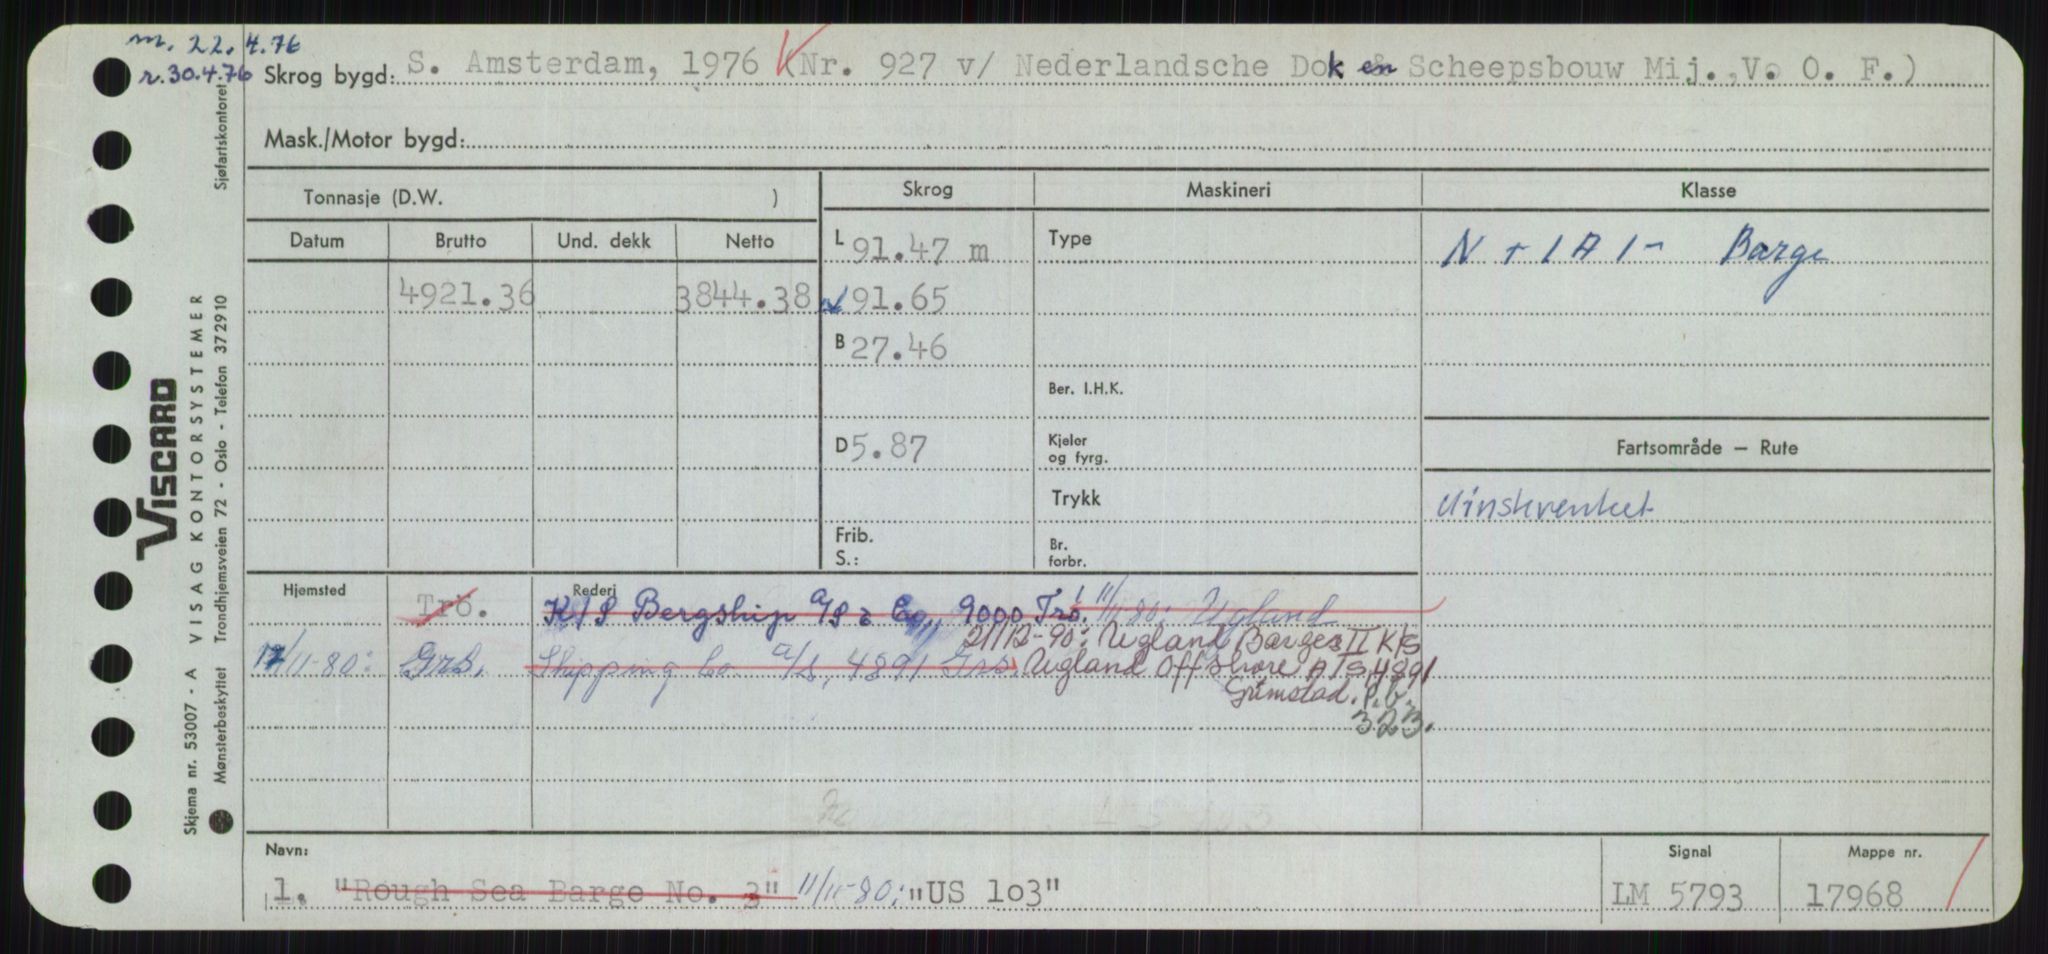 m. 22.4.76
r. 30.4.76
Skrog bygd: S. Amsterdam, 1976 (Nr. 927 v/ Nederlandsche Dok en Scheepsbouw Mij., V. O. F.)
Mask./Motor bygd:
Tonnasje (D.W. )
Skrog
Maskineri
Klasse
Datum Brutto Und. dekk Netto
L 91.47 m
Type
N + 1 A 1 - Barge
4921.36 3844.38
91.65
B 27.46
Ber. I.H.K.
D 5.87
Kjeler
og fyrg.
Fartsområde — Rute
Trykk
Uinskrenket
Frib.
S.:
Br.
forbr.
Hjemsted
Rederi
Trö. K/S Bergship A/S & Co., 9000 Trö. 11/11-80: Ugland
21/12-90: Ugland Barges II K/S
11/11-80: Grs. Shipping Co. a/s, 4891 Grs. Ugland Offshore A/S 4891
Grimstad. P.b.
323.
Navn:
Signal
Mappe nr.
1. "Rough Sea Barge No. 3" 11/11-80: "US 103"
LM 5793
17968
VISCARD
VISAG KONTORSYSTEMER
Skjema nr. 53007 - A
Trondhjemsveien 72 - Oslo - Telefon 372910
Mønsterbeskyttet
Sjøfartskontoret